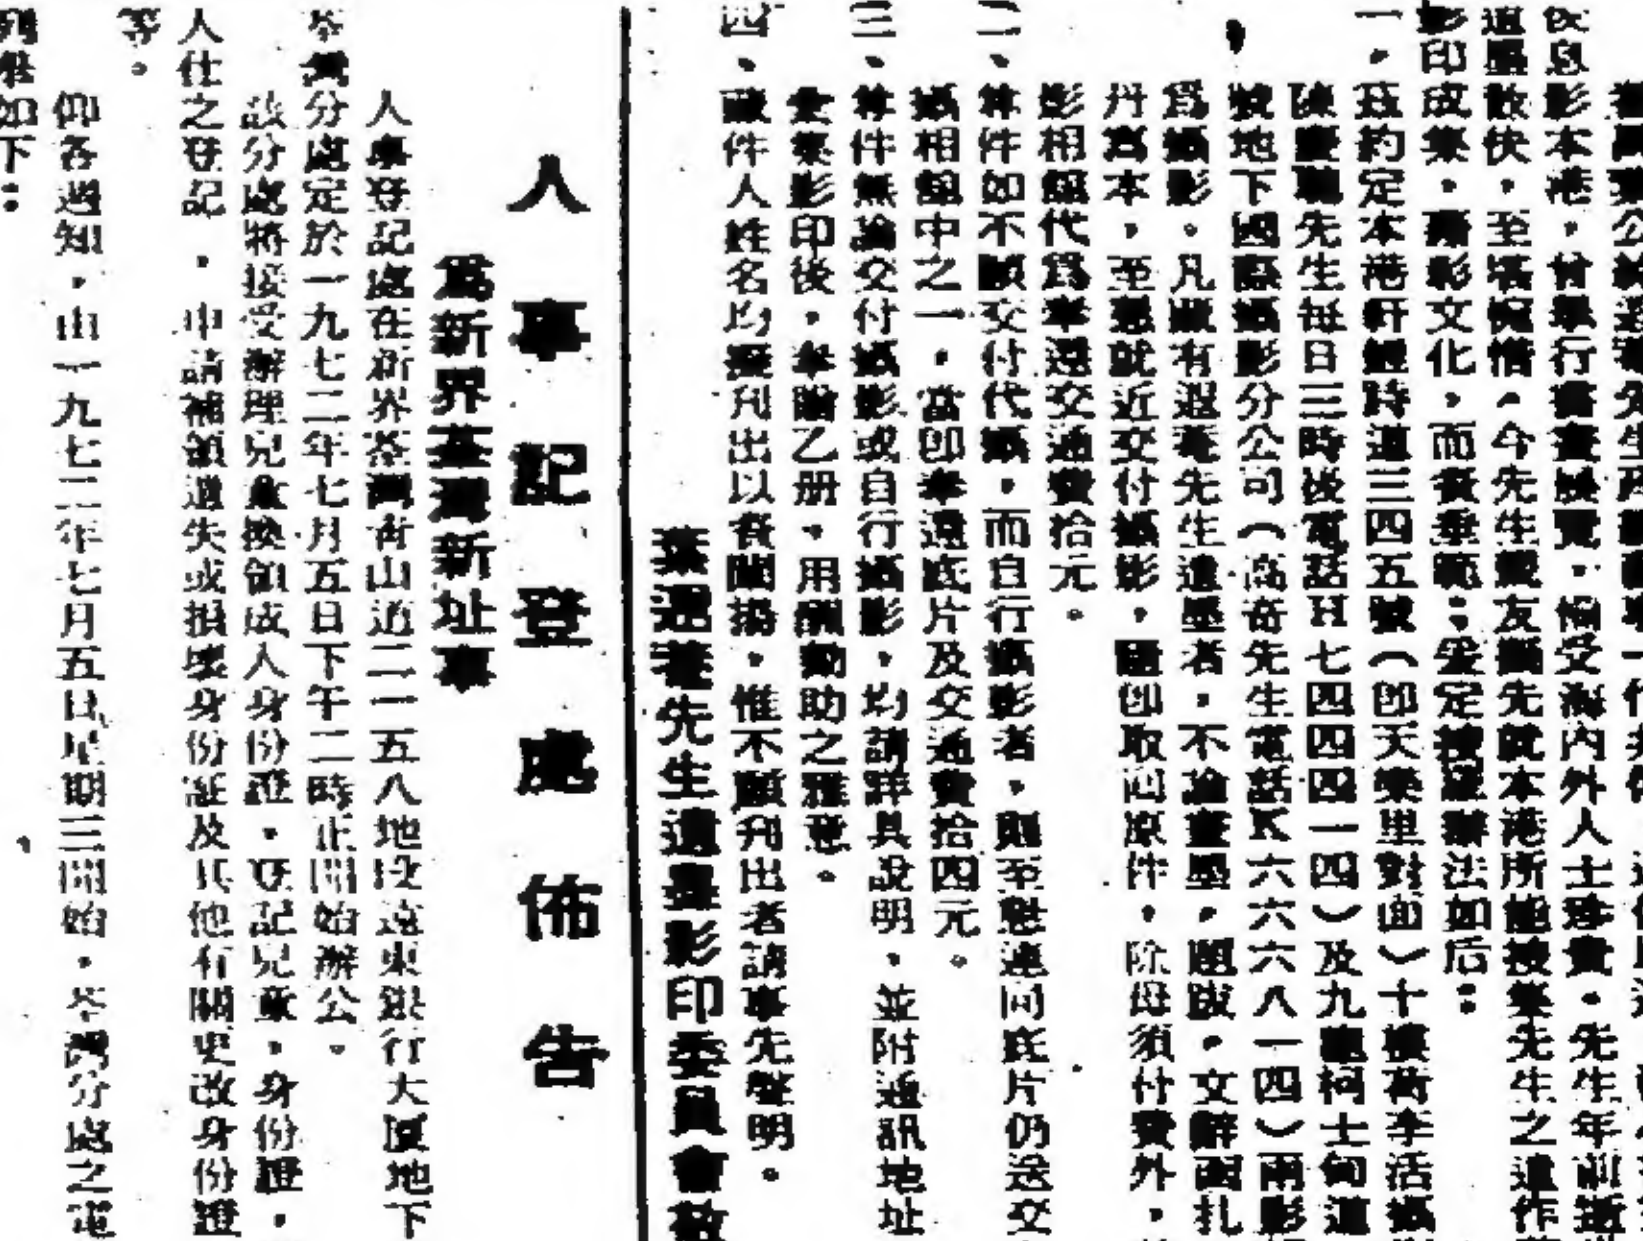 侯息影本港,曾舉行書畫展覽,備受海內外人士珍賞。先生年前逝
遺墨散佚,至堪惋惜。今先生親友擬先就本港所能搜集先生之遺作
影印成集,藉彰文化,而資垂範;爰定搜羅辦法如后:
一,茲約定本港軒鯉詩道三四五號(即天樂里對面)十樓葛李活攝
陳慶聰先生每日三時後電話H七四四四一四)及九龍柯士甸道
號地下國際攝影分公司(高奇先生電話K六六六八一四)兩影
爲攝影。凡藏有遐菴先生遺墨者,不論畫墨,題跋,文辭函扎
丹爲本,至懇就近交付攝影,隨卽取回原件,除毋須付費外,
影相館代爲奉還交通費拾元。
二、藏件如不願交付代攝,而自行攝影者,則至懇連同底片仍送交
攝相館中之一,當卽奉還底片及交通費拾四元。
三、藏件無論交付攝影或自行攝影,均請詳具說明,並附通訊地址
全集影印後,奉贈乙册,用酬勷助之雅意。
四、藏件人姓名均擬刋出以資闡揚,惟不願刋出者請事先聲明。
葉遐菴先生遺墨影印委員會啟
人事記登處佈告
爲新界荃灣新址事
人事登記處在新界荃灣靑山道二一五八地段遠東銀行大厦地下
荃灣分處定於一九七二年七月五日下午二時正開始辦公。
該分處將接受辦理兒童換領成人身份證,登記兒童,身份證,
人仕之登記,申請補領遺失或損壞身份証及其他有關更改身份證
等。
仰各週知,由一九七二年七月五日星期三開始,荃灣分處之電
列推如下: